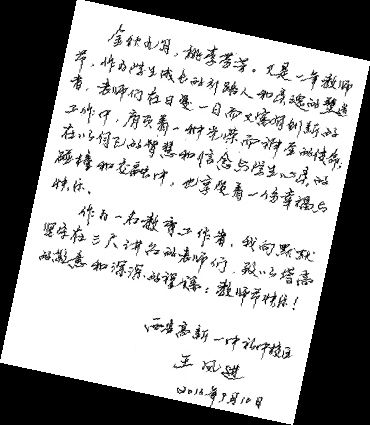 金秋九月，桃李芬芳。又是一年教师
节，作为学生成长的引路人和灵魂的塑造
者，老师们在日复一日而又富有创新的
工作中，肩负着一种光荣而神圣的使命，
在以自己的智慧和信念与学生心灵的
碰撞和交融中，也享受着一份幸福与
快乐。
作为一名教育工作者，我向默默
坚守在三尺讲台的老师们，致以崇高
的敬意和深深的祝福：教师节快乐！
西安高新一中初中校区
王凤进
2016年9月10日